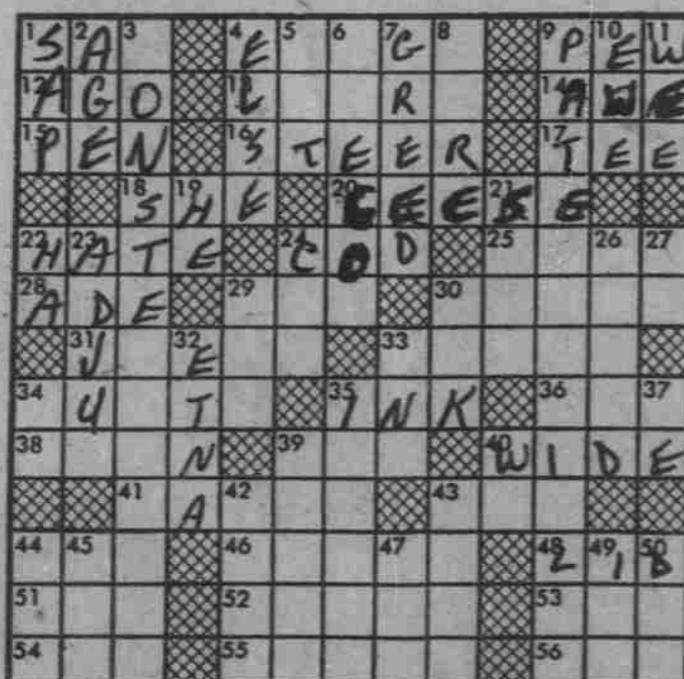 1 S 2 A 3 4 E 5 6 7 G 8 9 P 10 E 11 W
12 A G O 13 L R 14 A W E
15 P E N 16 S T E E R 17 T E E
18 S 19 H E 20 21 E
22 H 23 A T E 24 C O D 25 26 27
28 A D E 29 30
31 V 32 E 33
34 U T 35 I N K 36 37
38 N 39 40 W I D E
41 A 42 43
44 45 46 47 48 49 50
51 52 53
54 55 56